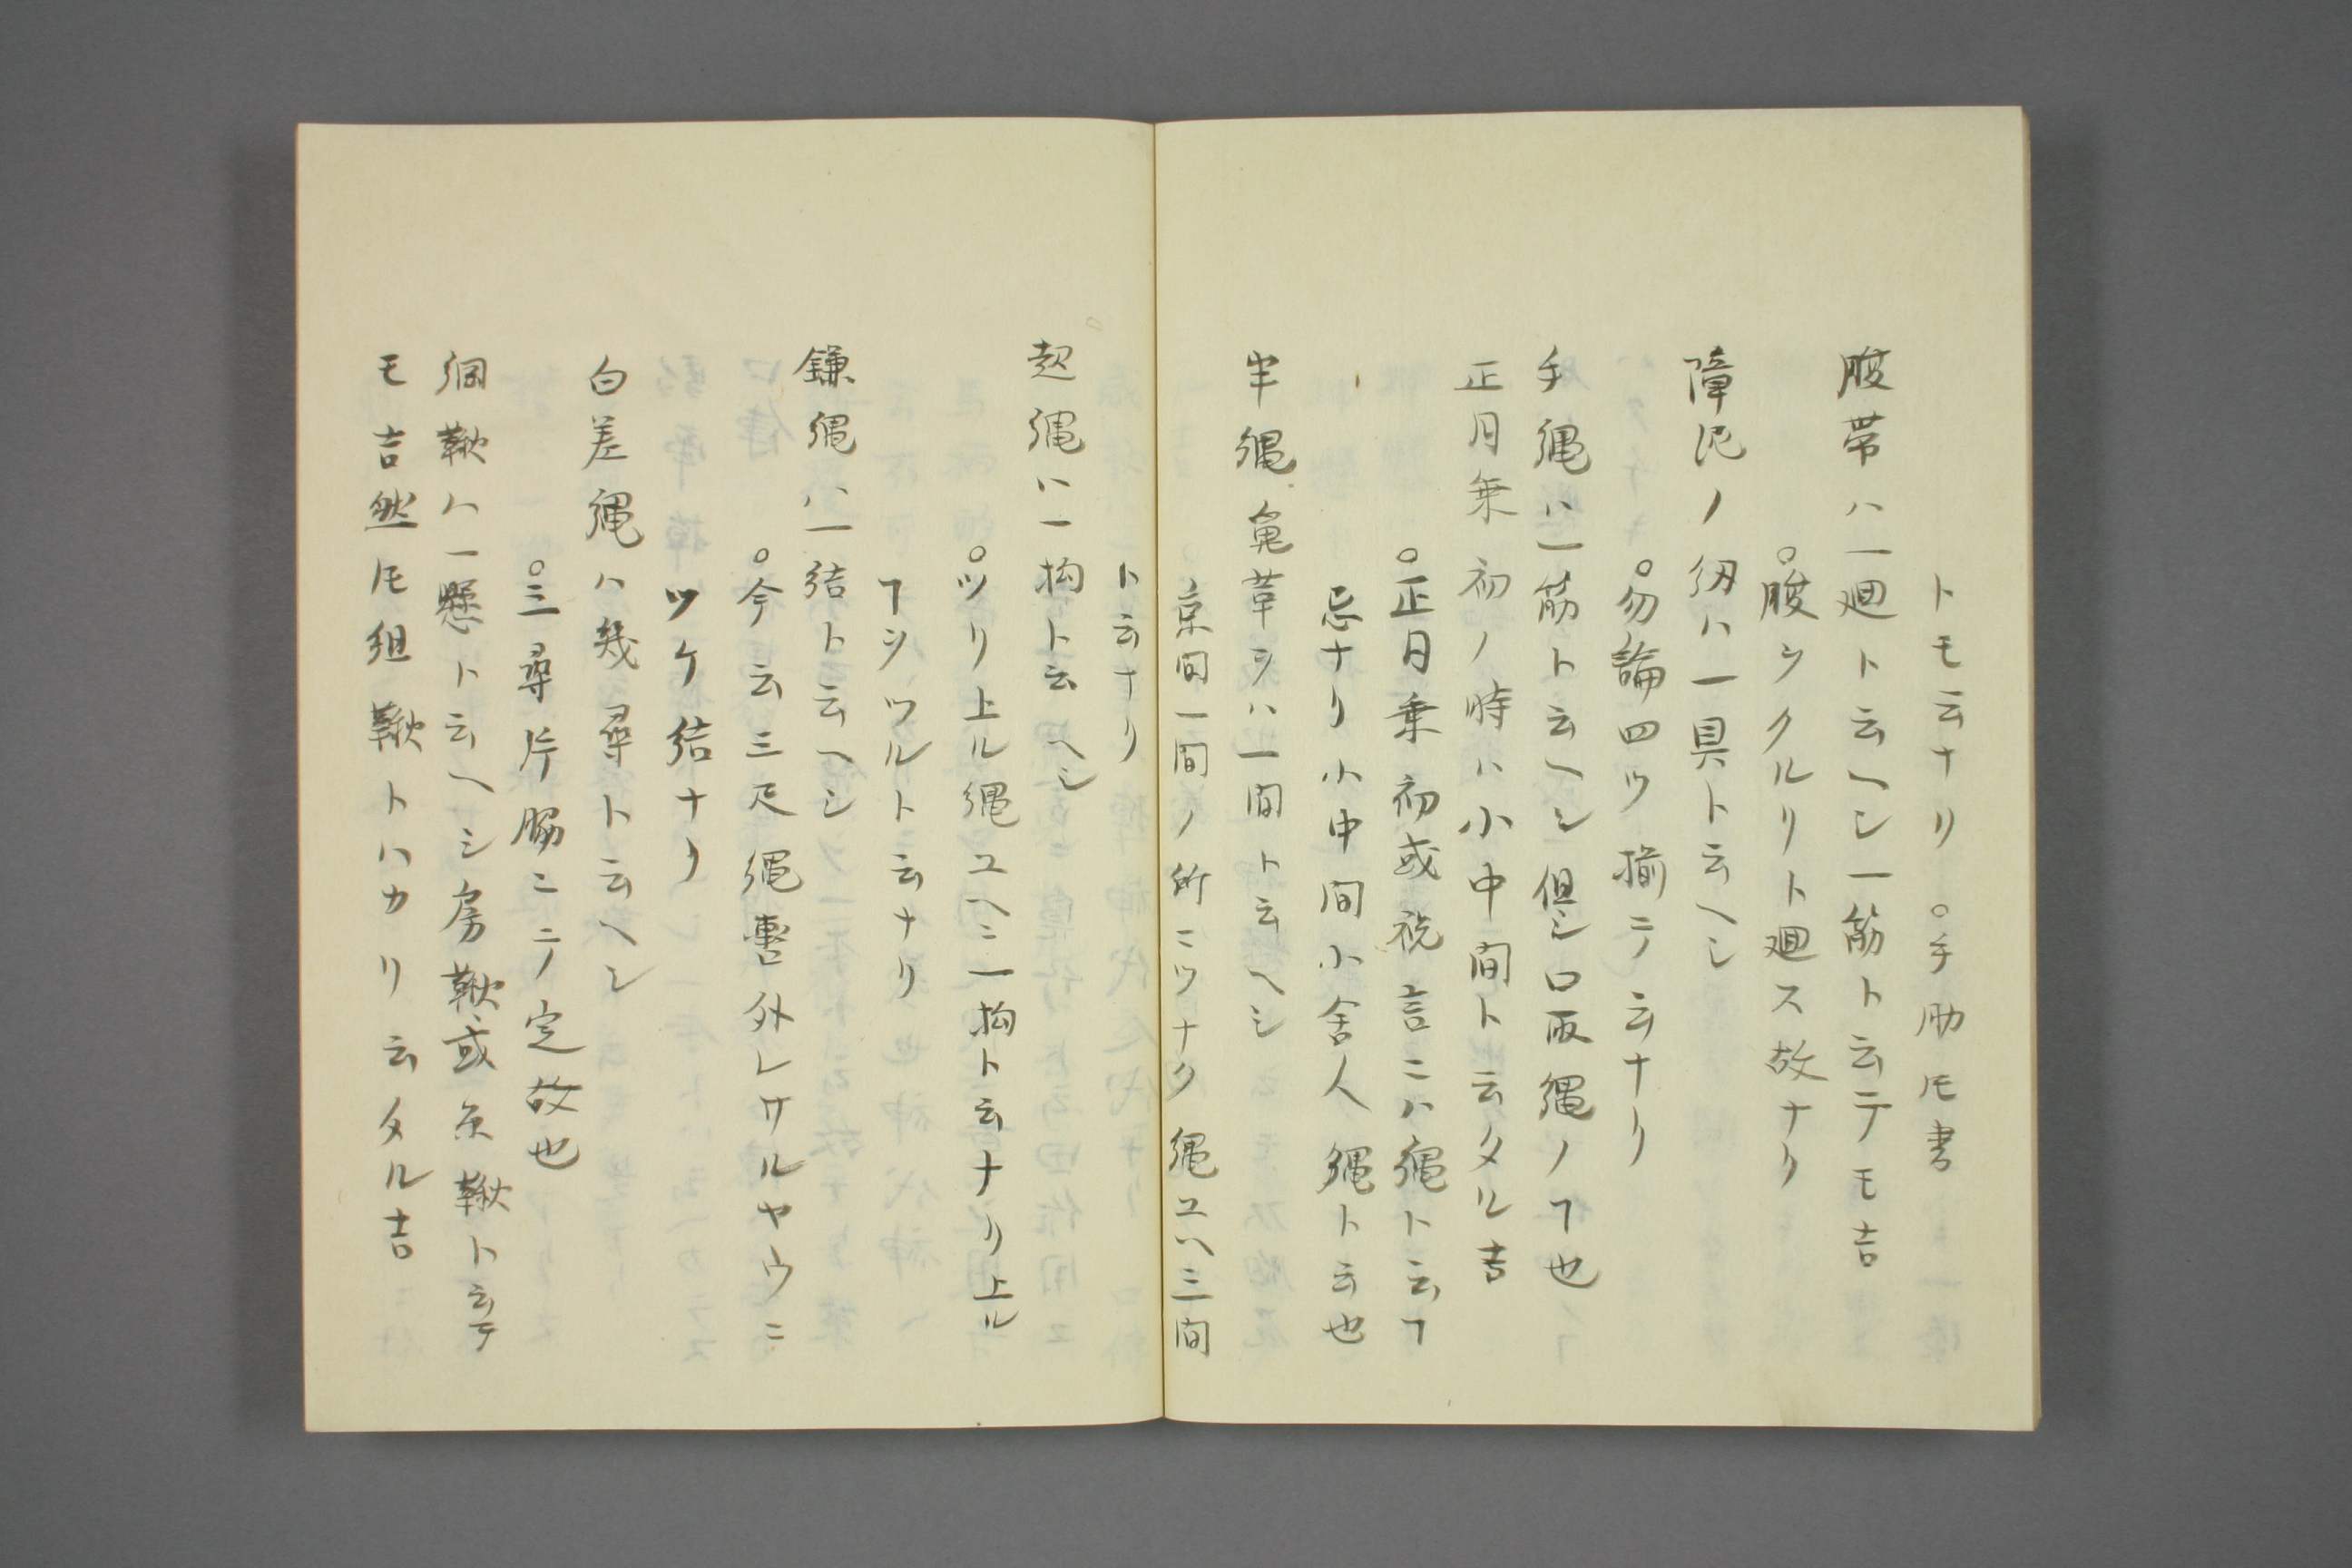 トモ云ナリ 。手助𪜈書
腹帯ハ一廻ト云ヘシ一筋ト云テモ吉
。腹ヲクルリト廻ス故ナリ
障泥ノ紐ハ一具ト云ヘシ
。勿論四ツ揃テ云ナリ
手縄ハ一筋ト云ヘシ但シ口取縄ノヿ也
正月乗初ノ時ハ小中間ト云タル吉
。正月乗初或祝言ニハ縄ト云ヿ
忌ナリ小中間小舎人縄ト云也
牢縄亀革ヲハ一間ト云ヘシ
京間一間ノ所ニツナク縄ユヘ三間
ト云ナリ
起縄ハ一拘ト云ヘシ
。ツリ上ル縄ユヘニ一拘ト云ナリ上ル
ヿヲツルト云ナリ
鎌縄ハ一結ト云ヘシ
。今云三尺縄轡外レサルヤウニ
ツケ結ナリ
白差縄ハ幾尋ト云ヘシ
。三尋片脇ニテ定故也
絅鞦ハ一懸ト云ヘシ房鞦或糸鞦ト云テ
モ吉然𪜈組鞦トハカリ云タル吉